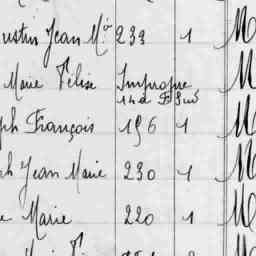 ustin Jean M.ie 233 1 M
Marie Félise Impropre M
ph François 196 1 M
ph Jean Marie 230 1 M
e Marie 220 1 M